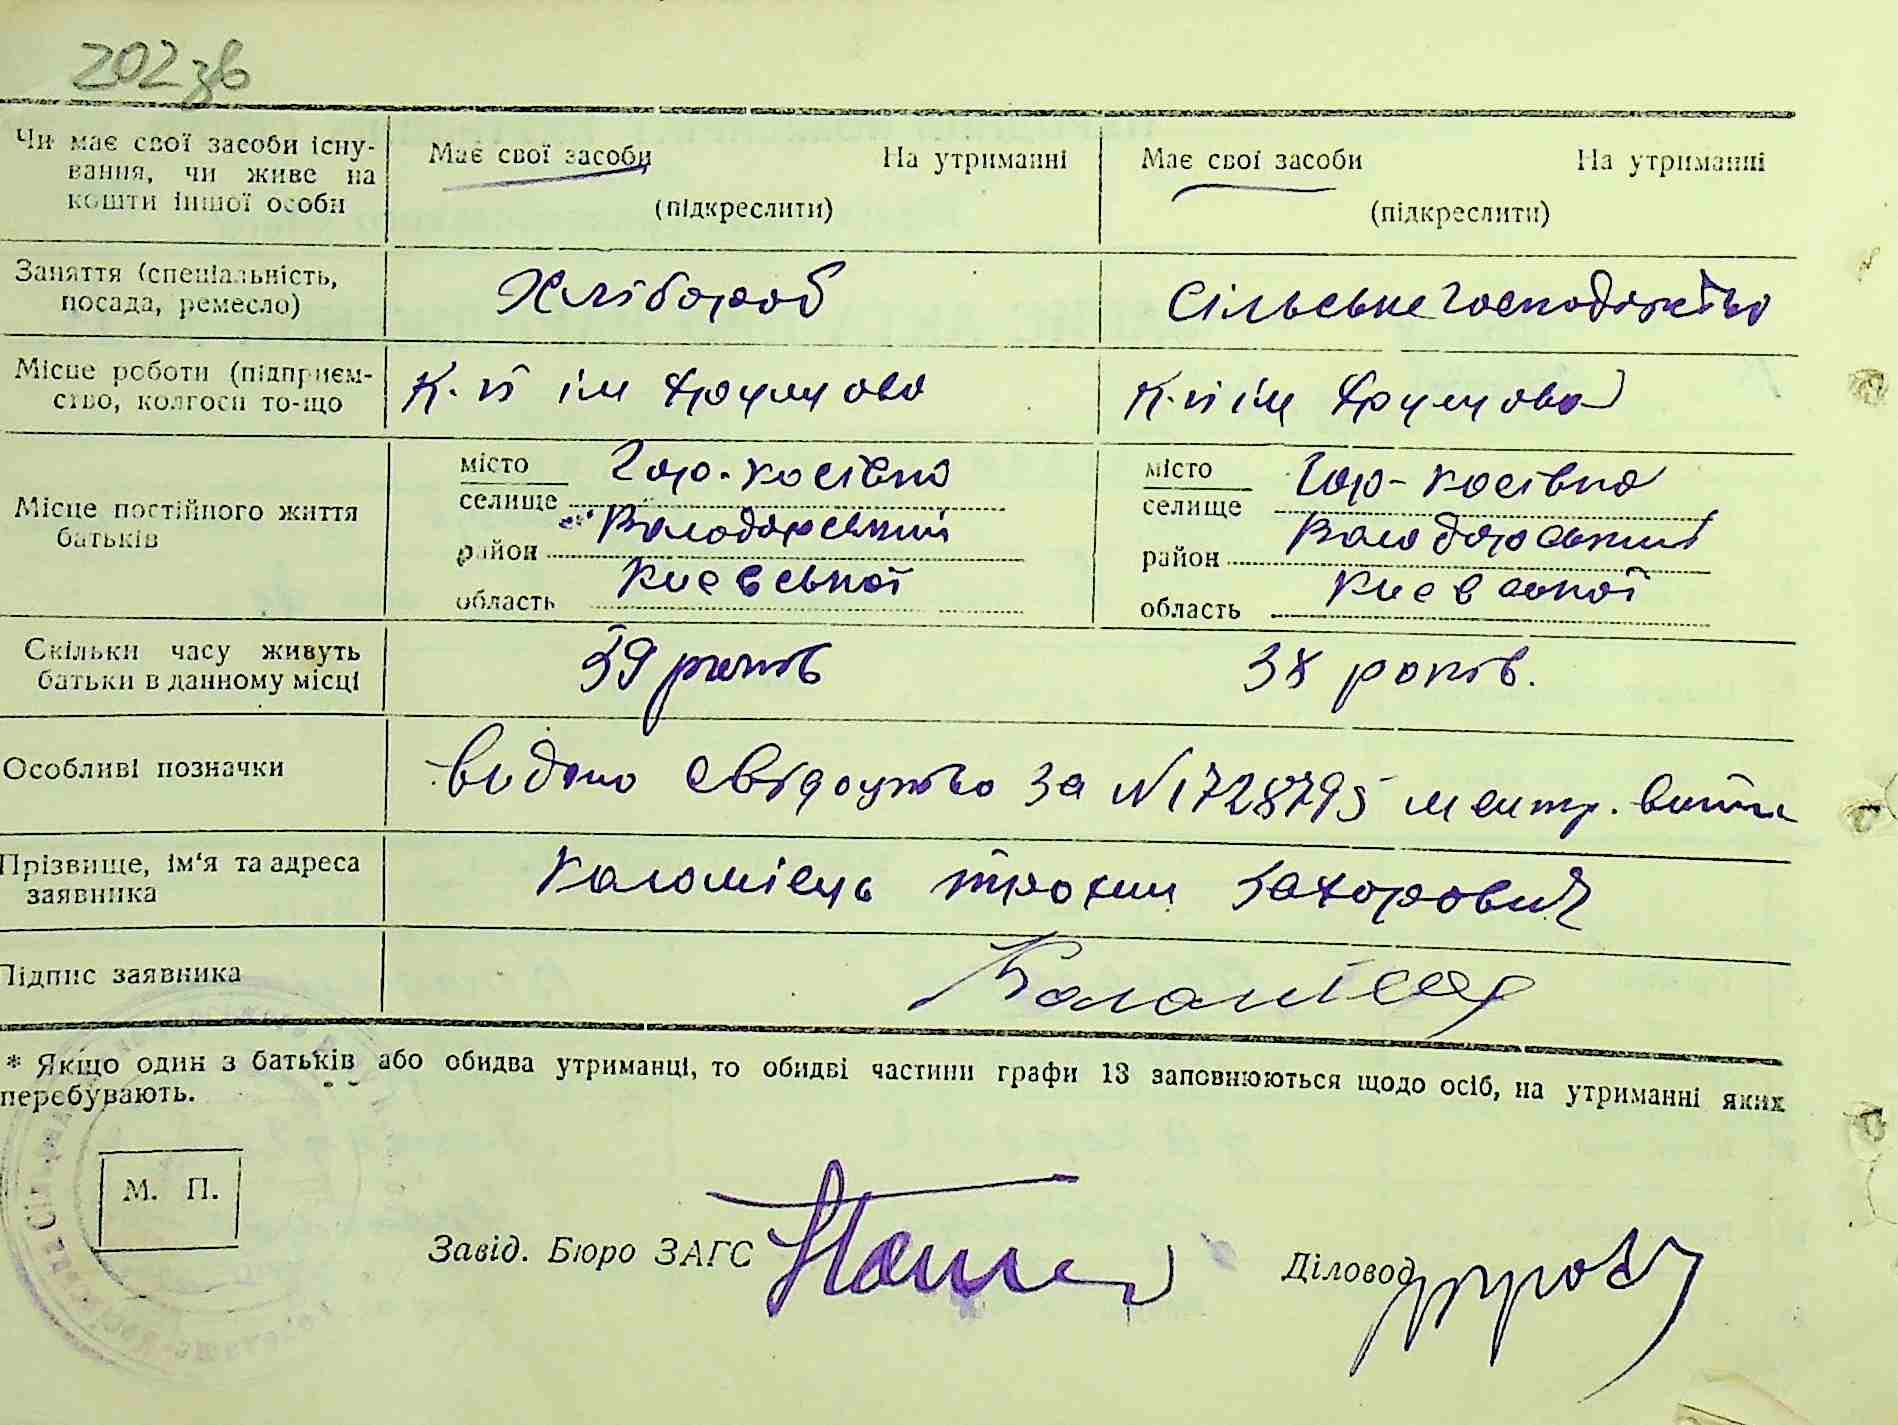 202 зв
Чи має свої засоби існу-
вання, чи живе на
кошти іншої особи
Має свої засоби На утриманні
(підкреслити)
Має свої засоби На утриманні
(підкреслити)
Заняття (спеціальність,
посада, ремесло)
Хлібороб
Сільське господарство
Місце роботи (підприєм-
ство, колгосп то-що
К-п ім Фрунзова
К-п ім Фрунзова
Місце постійного життя
батьків
місто
селище Гор-Косівка
район Володарський
область Києвської
місто
селище Гор-Косівка
район Володарський
область Києвської
Скільки часу живуть
батьки в данному місці
39 років
38 років.
Особливі позначки
Видано свідоцтво за № 1728795 метр. витяг
Прізвище, ім'я та адреса
заявника
Коломієць Трохим Захорович
Підпис заявника
Коломієць
* Якщо один з батьків або обидва утриманці, то обидві частини графи 13 заповнюються щодо осіб, на утриманні яких
перебувають.
М. П.
Завід. Бюро ЗАГС
Діловод